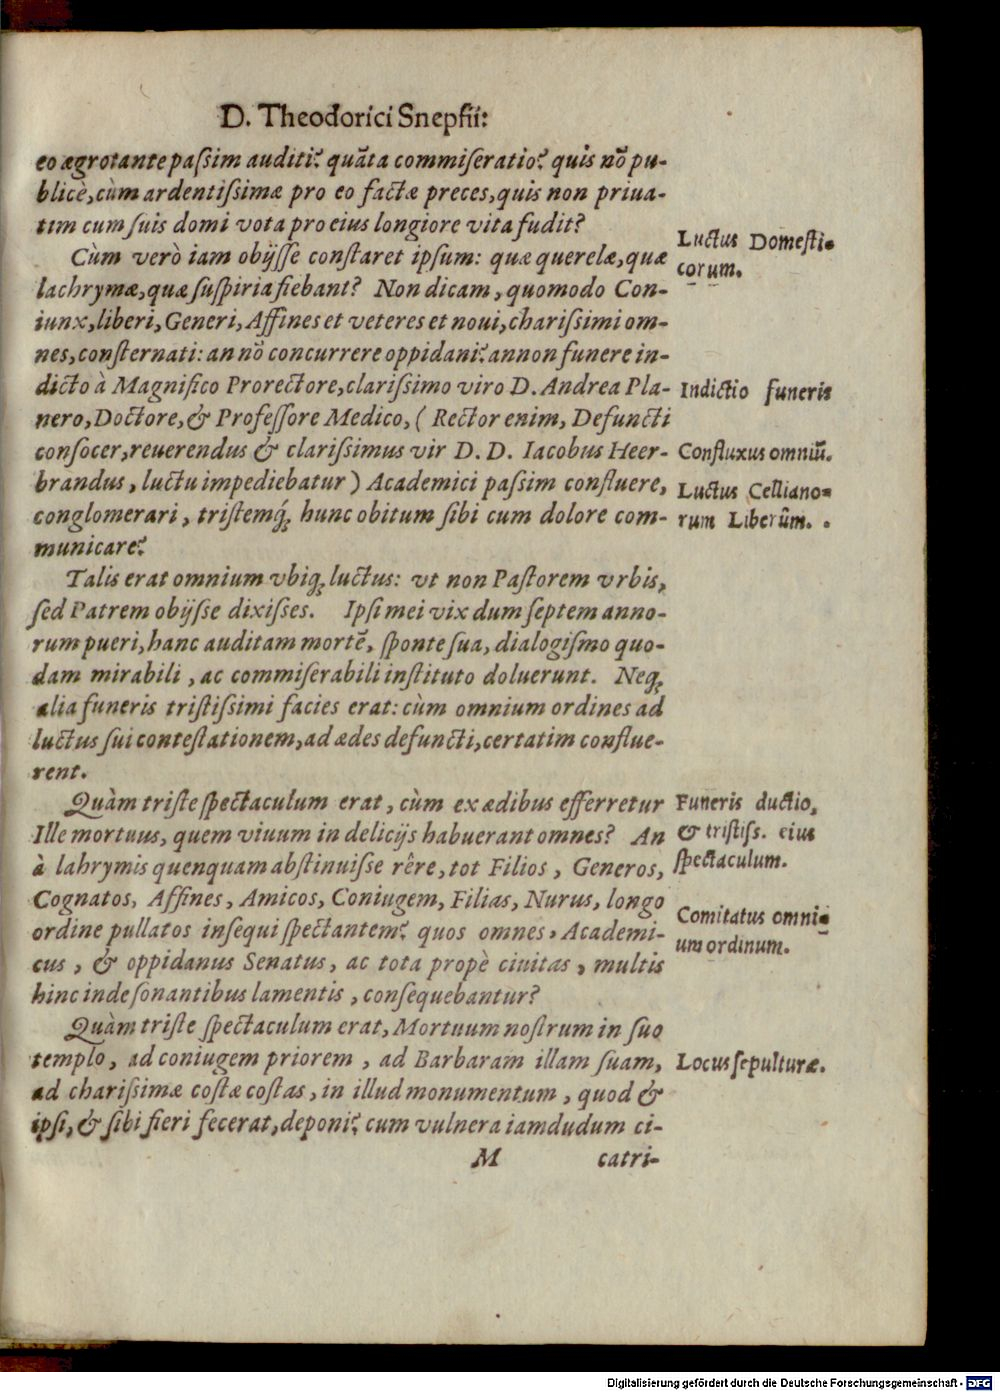 D. Theodorici Snepfii:
eo ægrotante paſsim auditi? quãta commiſeratio? quis nõ pu-
blicè, cùm ardentiſsimæ pro eo factæ preces, quis non priua-
tim cum ſuis domi vota pro eius longiore vita fudit?
Cùm verò iam obijſſe conſtaret ipſum: quæ querelæ, quæ
lachrymæ, quæ ſuſpiria fiebant? Non dicam, quomodo Con-
iunx, liberi, Generi, Affines et veteres et noui, chariſsimi om-
nes, conſternati: an nõ concurrere oppidani? annon funere in-
dicto à Magnifico Prorectore, clariſsimo viro D. Andrea Pla-
nero, Doctore, & Profeſſore Medico, ( Rector enim, Defuncti
conſocer, reuerendus & clariſsimus vir D. D. Iacobus Heer-
brandus, luctu impediebatur ) Academici paſsim confluere,
conglomerari, triſtemq́; hunc obitum ſibi cum dolore com-
municare?
Talis erat omnium vbiq; luctus: vt non Paſtorem vrbis,
ſed Patrem obijſſe dixiſſes. Ipſi mei vix dum ſeptem anno-
rum pueri, hanc auditam mortẽ, ſponte ſua, dialogiſmo quo-
dam mirabili, ac commiſerabili inſtituto doluerunt. Neq;
alia funeris triſtiſsimi facies erat: cùm omnium ordines ad
luctus ſui conteſtationem, ad ædes defuncti, certatim conflue-
rent.
Quàm triſte ſpectaculum erat, cùm ex ædibus efferretur
Ille mortuus, quem viuum in delicijs habuerant omnes? An
à lahrymis quenquam abſtinuiſſe rêre, tot Filios, Generos,
Cognatos, Affines, Amicos, Coniugem, Filias, Nurus, longo
ordine pullatos inſequi ſpectantem? quos omnes, Academi-
cus, & oppidanus Senatus, ac tota propè ciuitas, multis
hinc inde ſonantibus lamentis, conſequebantur?
Quàm triſte ſpectaculum erat, Mortuum noſtrum in ſuo
templo, ad coniugem priorem, ad Barbaram illam ſuam,
ad chariſsimæ coſtæ coſtas, in illud monumentum, quod &
ipſi, & ſibi fieri fecerat, deponi? cum vulnera iamdudum ci-
M catri-
Luctus Domeſti-
corum.
Indictio funeris
Confluxus omniũ.
Luctus Celliano-
rum Liberûm.
Funeris ductio,
& triſtiſs. eius
ſpectaculum.
Comitatus omni-
um ordinum.
Locus ſepulturæ.
Digitalisierung gefördert durch die Deutsche Forschungsgemeinschaft - DFG